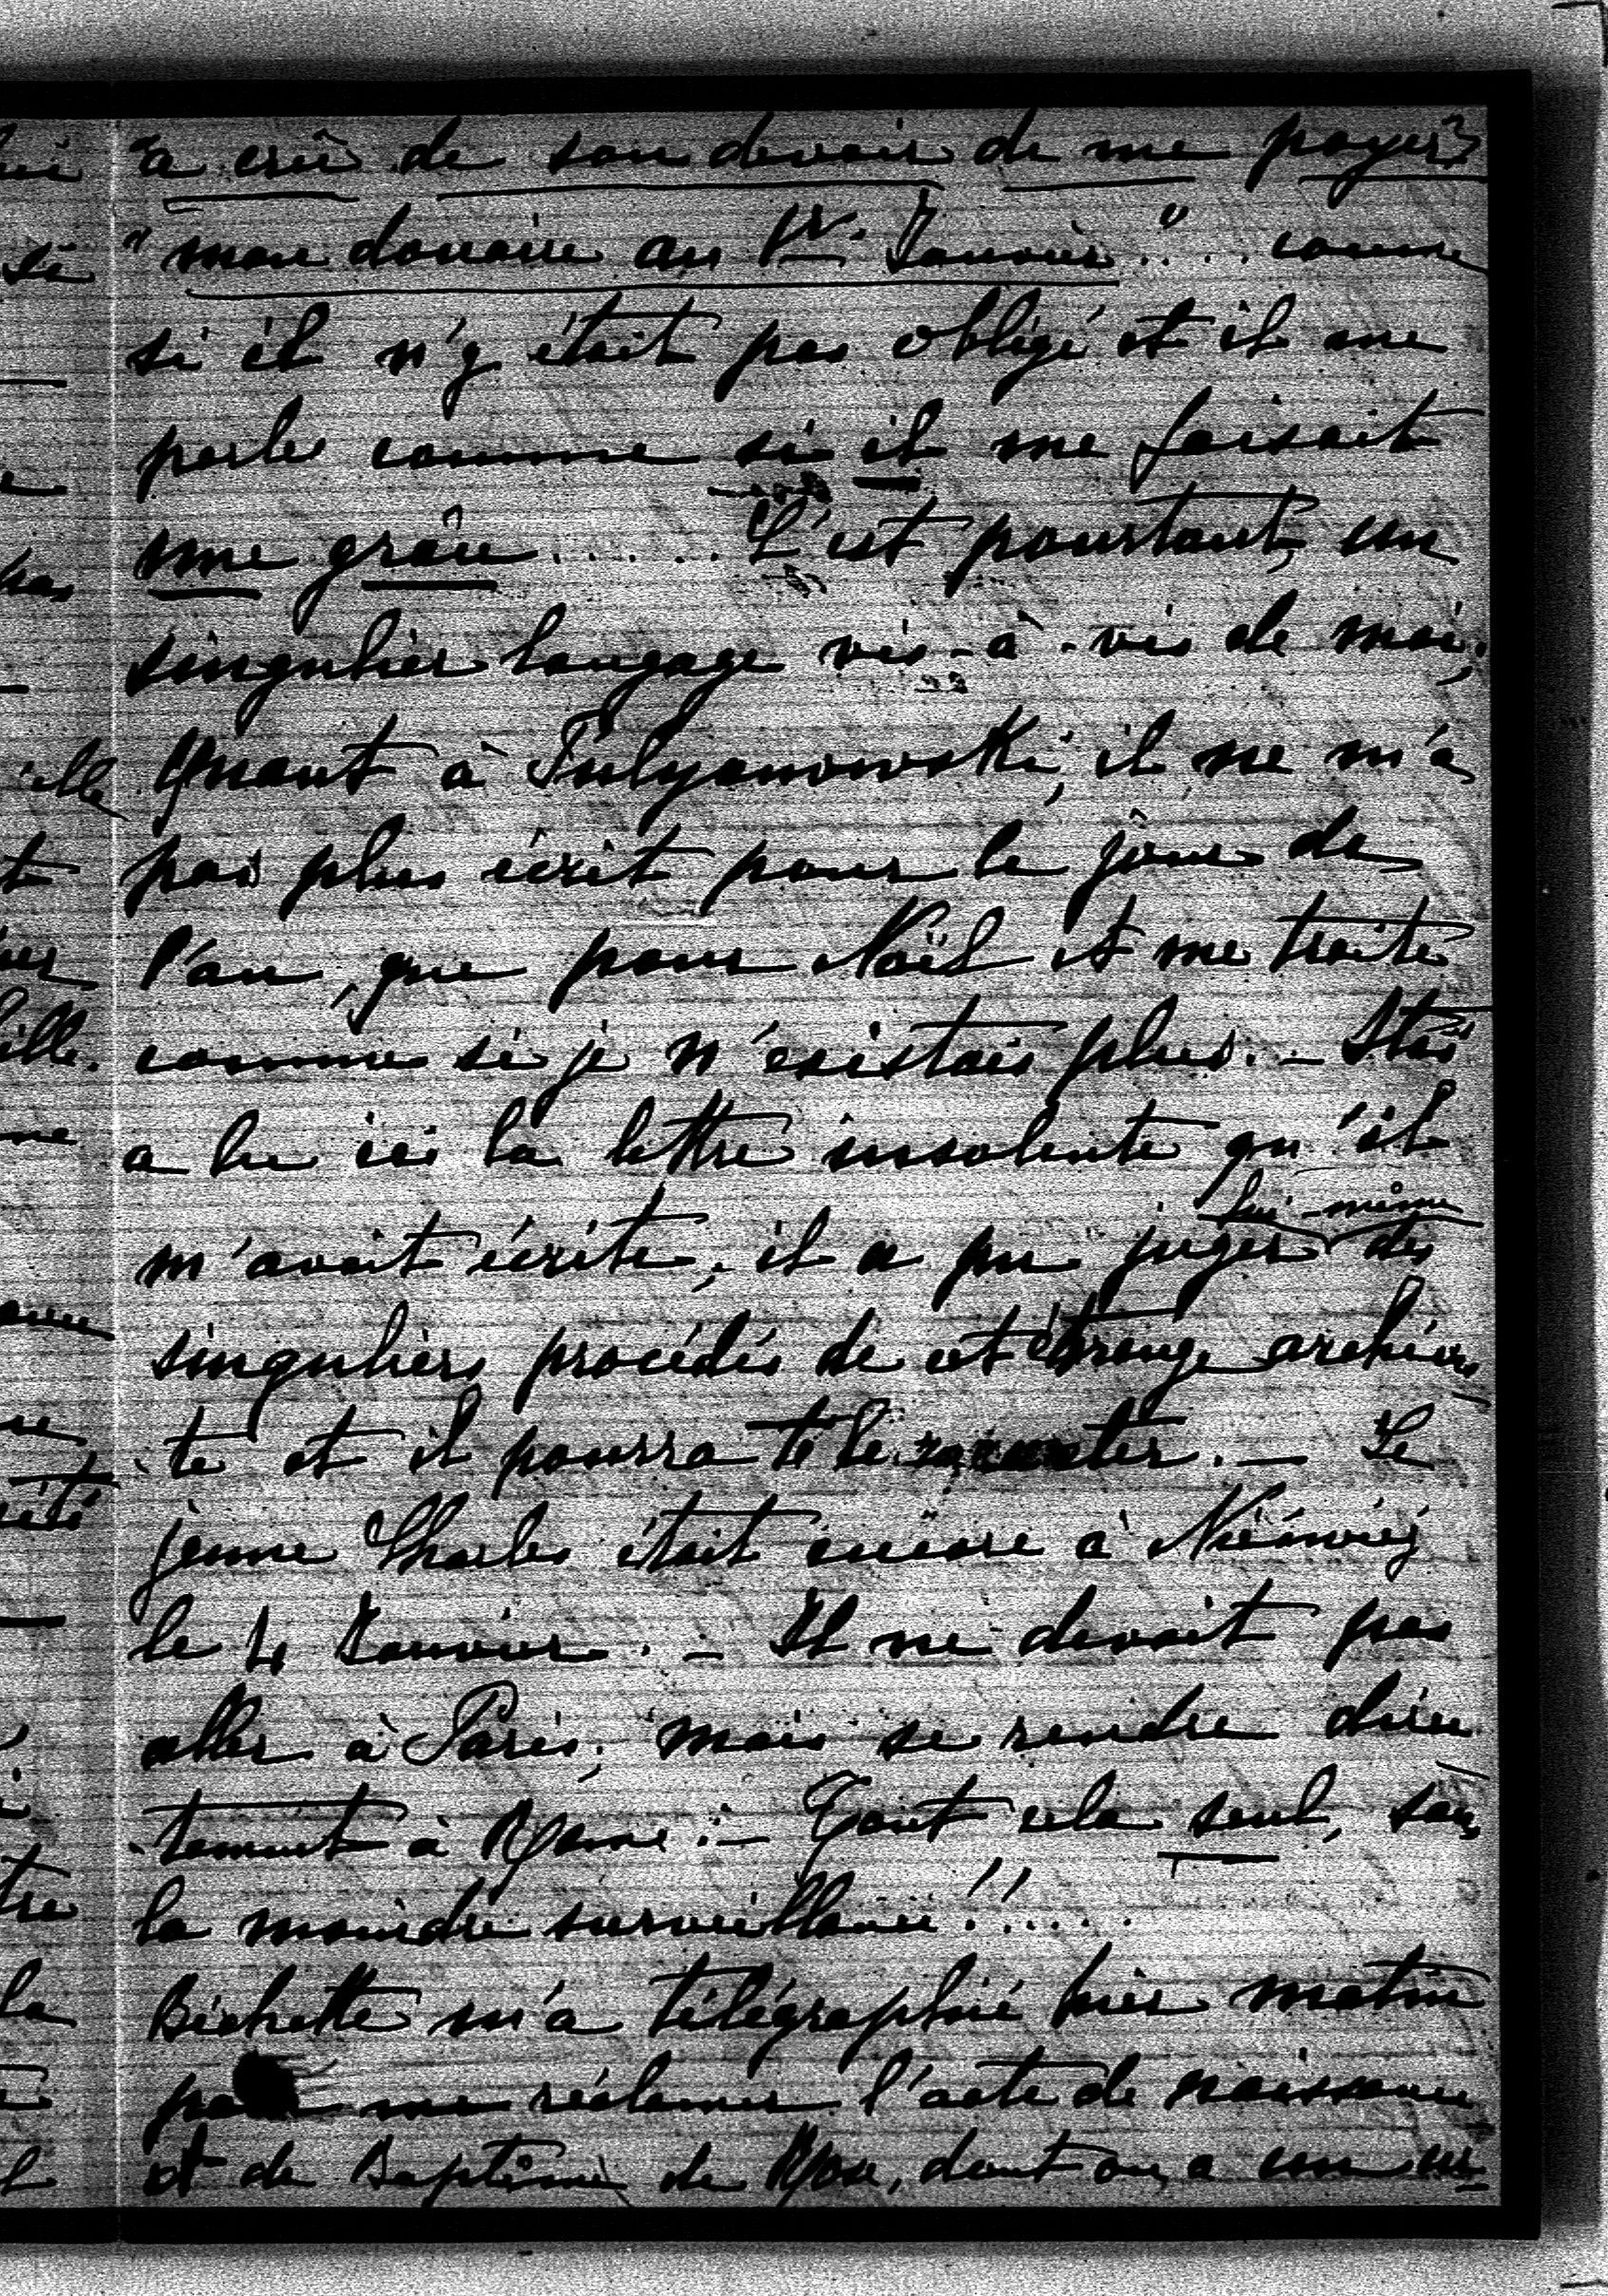 "a crû de son devoir de me payer
"mon douaire au 1er Janvier".... comme
si il n'y était pas obligé et il me
parle comme si il me faisait
une grâce...... C'est pourtant, un
singulier langage vis-à-vis de moi;
Quant à Pulyanowski, il ne m'a
pas plus écrit pour le jour de
l'an, que pour Noël et me traite
comme si je n'existais plus. — Staś
a lu ici la lettre insolente qu'il
m'avait écrite, il a pu juger lui-même des
singuliers procédés de cet étrange archivis
-te et il pourra te le raconter. — Le
jeune Charles était encore à Nieśwież
le 4 Janvier. — Il ne devait pas
aller à Paris, mais se rendre direc
-tement à Rome. — Tout cela seul, sans
la moindre surveillance!!.....
Bichette m'a télégraphié hier matin
pour me réclamer l'acte de naissance
et de Baptême de Rose, dont on a un ur-
lui
si
pas
elle
t
ille.
ne
été
tre
la